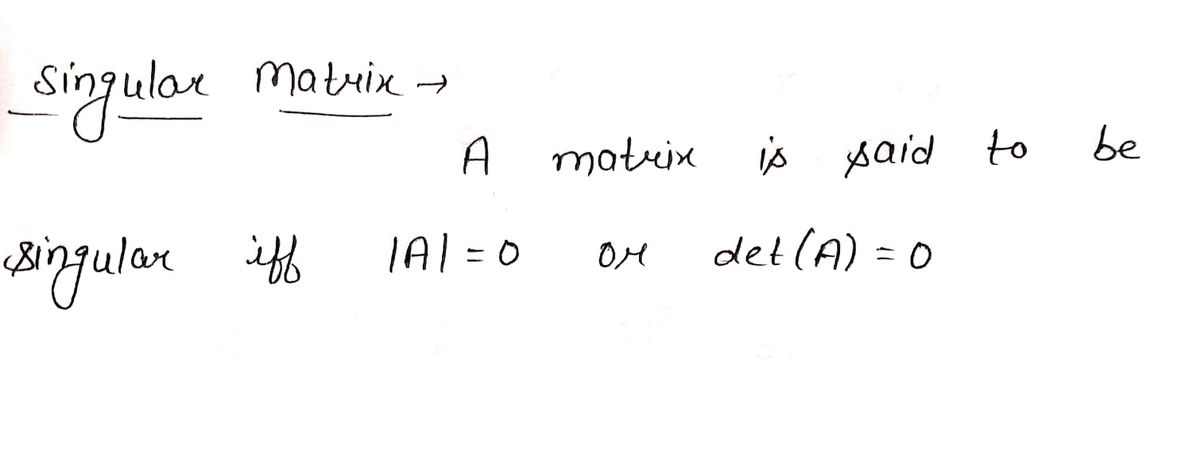 Singular Matrix →
A matrix is said to be
singular iff |A| = 0 or det(A) = 0